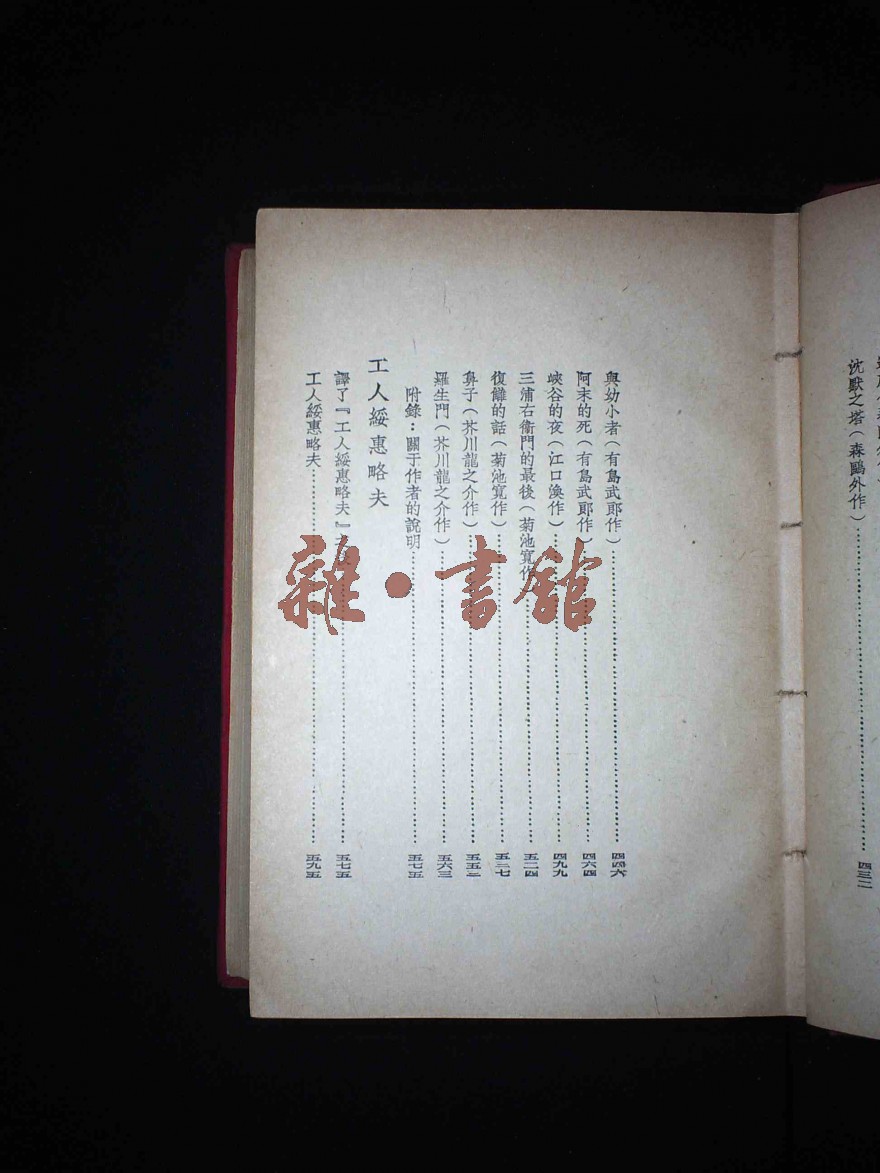 沈默之塔(森鷗外作)……四三二
與幼小者(有島武郎作)……四四六
阿末的死(有島武郎作)……四六四
峽谷的夜(江口渙作)……四九九
三浦右衞門的最後(菊池寬作……五一四
復讎的話(菊池寬作)……五二七
鼻子(芥川龍之介作)……五五二
羅生門(芥川龍之介作)……五六三
附錄:關于作者的說明……五七五
工人綏惠略夫
譯了『工人綏惠略夫』……五七五
工人綏惠略夫……五九五
雜·書館